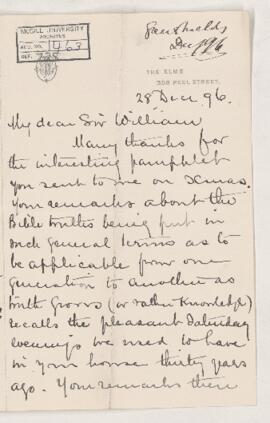 McGILL UNIVERSITY
ARCHIVES
ACC. NO. 1463
REF.
Greenshields
Dec 1896
THE ELMS
308 PEEL STREET.
28 Dec 96.
My dear Sir William
Many thanks for
the interesting pamphlet
you sent to me on Xmas.
Your remarks about the
Bible truths being put in
such general terms as to
be applicable from one
generation to another as
truth grows (or rather knowledge)
recalls the pleasant Saturday
evenings we used to have
in your house thirty years
ago. Your remarks then